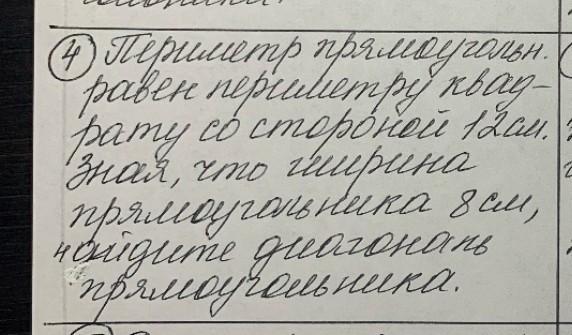 ④ Периметр прямоугольн.
равен периметру квад-
рату со стороной 12см.
Зная, что ширина
прямоугольника 8см,
найдите диагональ
прямоугольника.